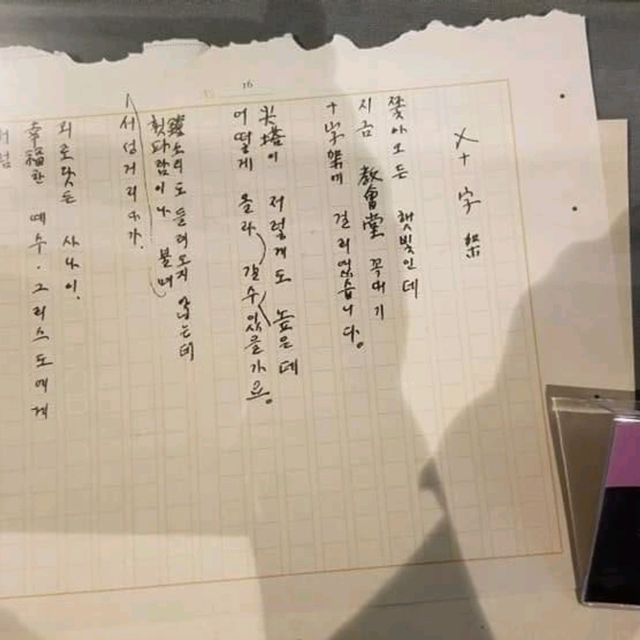 16
十字架
쫓아오든 햇빛인데
지금 敎會堂 꼭대기
十字架에 걸리였습니다。
尖塔이 저렇게도 높은데
어떻게 올라 갈수 있을가요。
鐘소리도 들려오지 않는데
휫파람이나 불며
서성거리다가,
괴로왓든 사나이,
幸福한 예수·그리스도에게
처럼